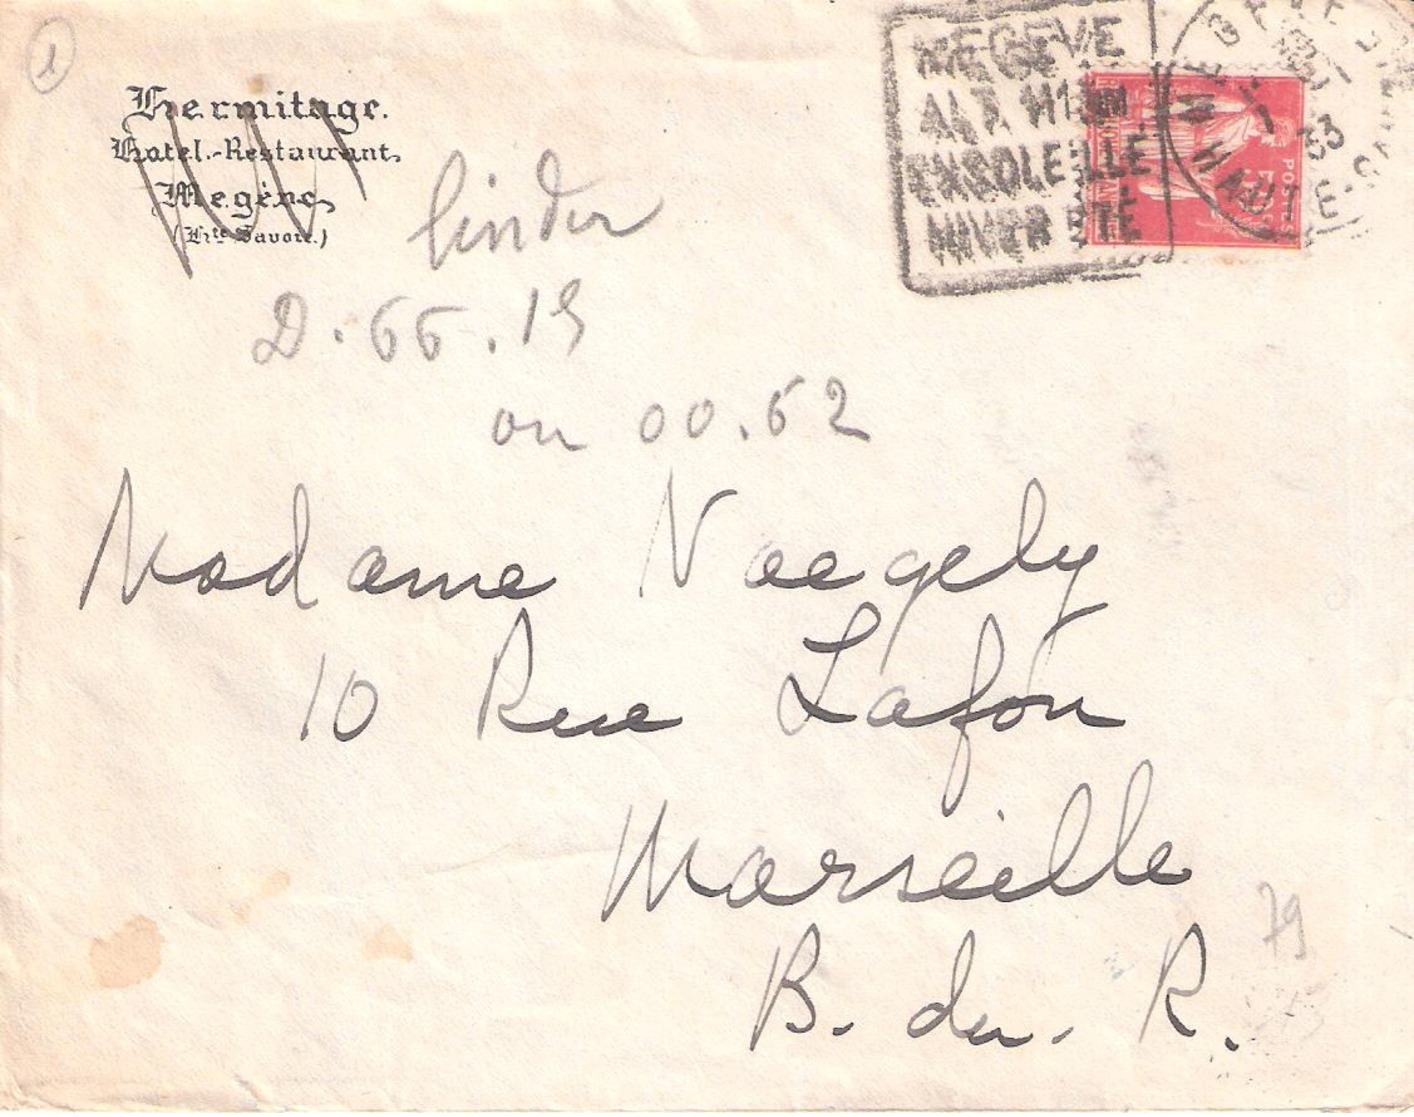 1
Hermitage.
Hotel.-Restaurant.
Megève
(Hte Savoie.)
MEGEVE
ALT. 1113m
ENSOLEILLÉ
HIVER ETE
MEGEVE
33
HAUTE-SAVOIE
POSTES
linder
D. 66. 19
ou 00. 62
Madame Naegely
10 Rue Lafon
Marseille
B. du. R.
79